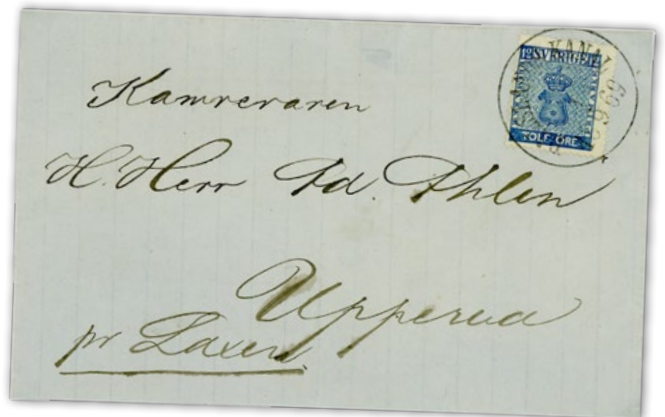 12 SVERIGE 12
TOLF ÖRE
Kamreraren
H. Herr Ad. Ahlen
Upperud
pr Laxen.